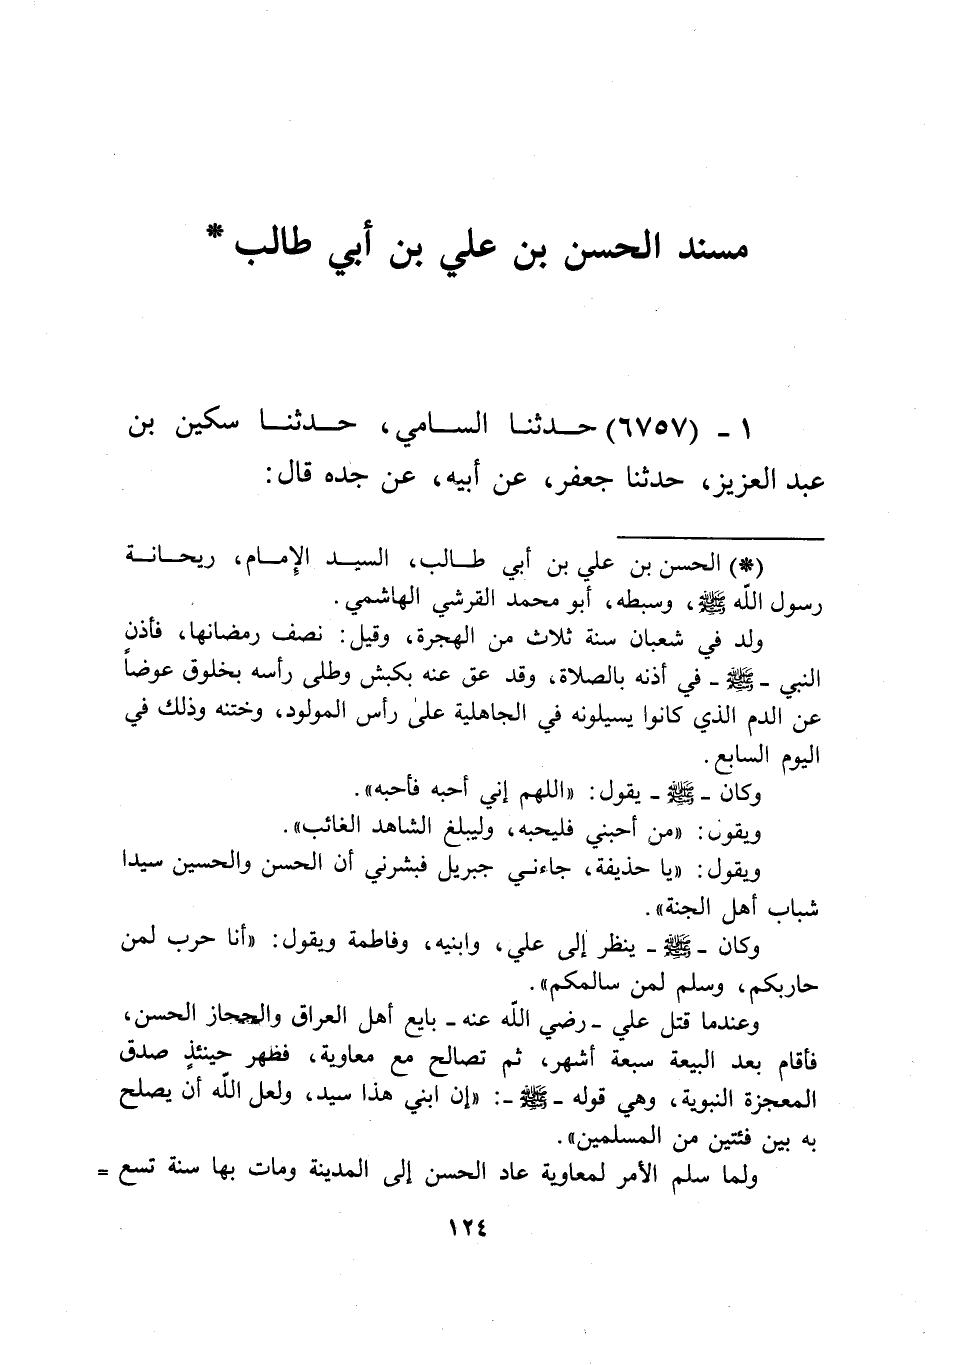 مسند الحسن بن علي بن أبي طالب *
١ ـ (٦٧٥٧) حـدثنـا الســامي، حــدثنــا سكين بن
عبد العزيز، حدثنا جعفر، عن أبيه، عن جده قال:
(*) الحسن بن علي بن أبي طـالب، السيـد الإمـام، ريحـانـة
رسول اللّه ﷺ، وسبطه، أبو محمد القرشي الهاشمي.
ولد في شعبان سنة ثلاث من الهجرة، وقيل: نصف رمضانها، فأذن
النبي ـ ﷺ ـ في أذنه بالصلاة، وقد عق عنه بكبش وطلى رأسه بخلوق عوضاً
عن الدم الذي كانوا يسيلونه في الجاهلية على رأس المولود، وختنه وذلك في
اليوم السابع.
وكان ـ ﷺ ـ يقول: «اللهم إني أحبه فأحبه».
ويقون: «من أحبني فليحبه، وليبلغ الشاهد الغائب».
ويقول: «يا حذيفة، جاءنـي جبريل فبشرني أن الحسن والحسين سيدا
شباب أهل الجنة».
وكان ـ ﷺ ـ ينظر إلى علي، وابنيه، وفاطمة ويقول: «أنا حرب لمن
حاربكم، وسلم لمن سالمكم».
وعندما قتل علي ـ رضي اللّه عنه ـ بايع أهل العراق والحجاز الحسن،
فأقام بعد البيعة سبعة أشهر، ثم تصالح مع معاوية، فظهر حينئذٍ صدق
المعجزة النبوية، وهي قوله ـ ﷺ ـ: «إن ابني هذا سيد، ولعل اللّه أن يصلح
به بين فئتين من المسلمين».
ولما سلم الأمر لمعاوية عاد الحسن إلى المدينة ومات بها سنة تسع =
١٢٤